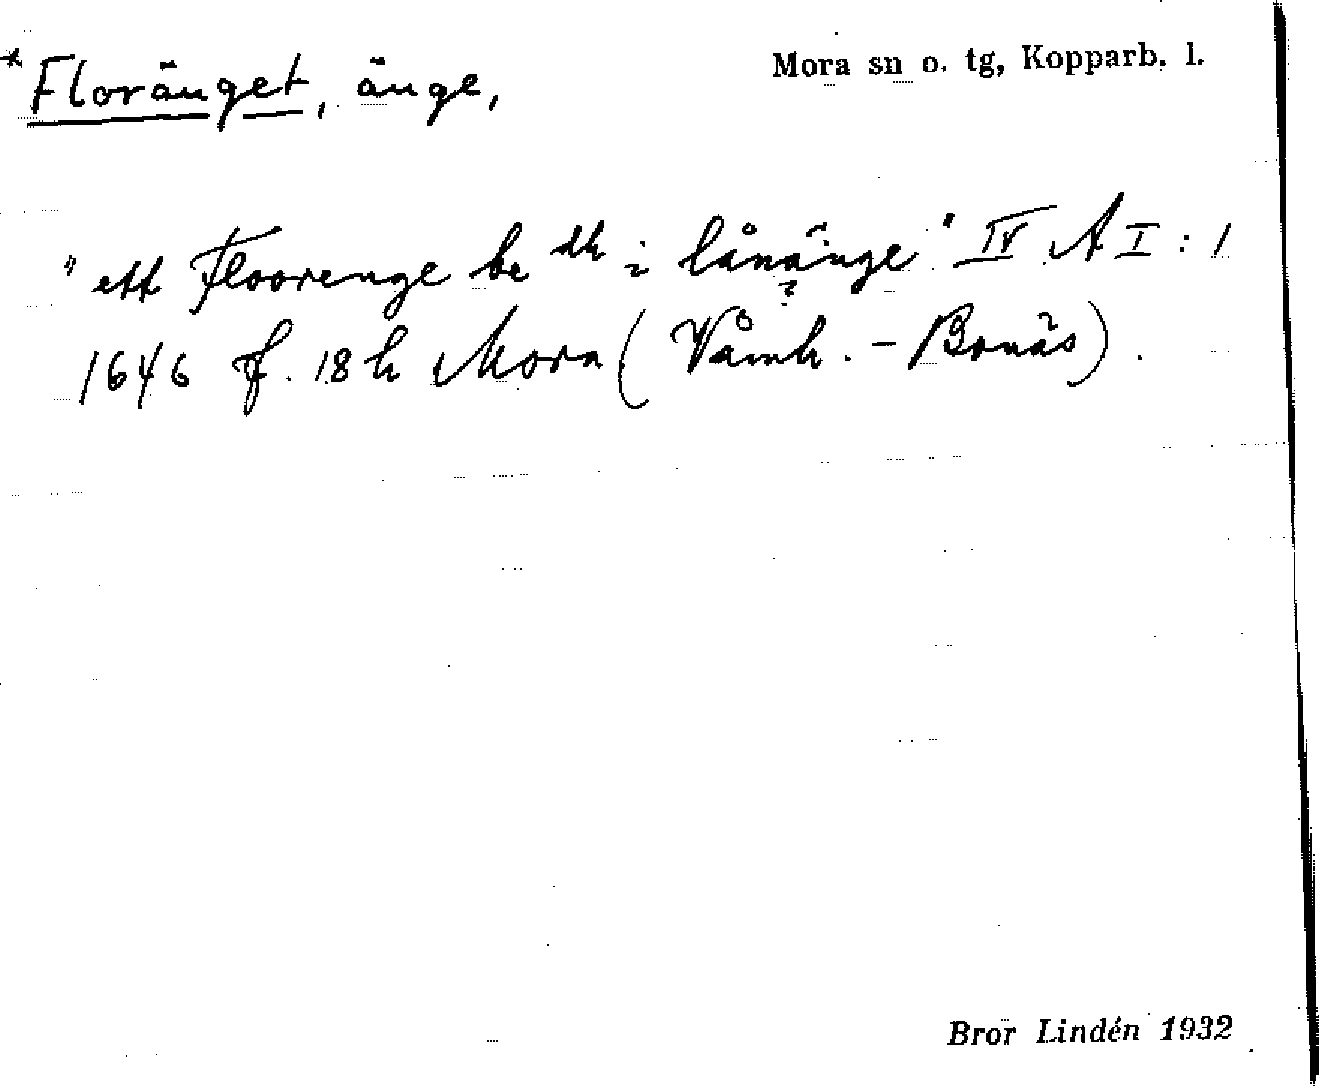 Mora sn o. tg, Kopparb. l.
* Floränget, änge,
"ett Floorenge be^th i lånänge" IV A I : 1
?
1646 f. 18 h Mora ( Våmh. - Bonäs ) .
Bror Lindén 1932